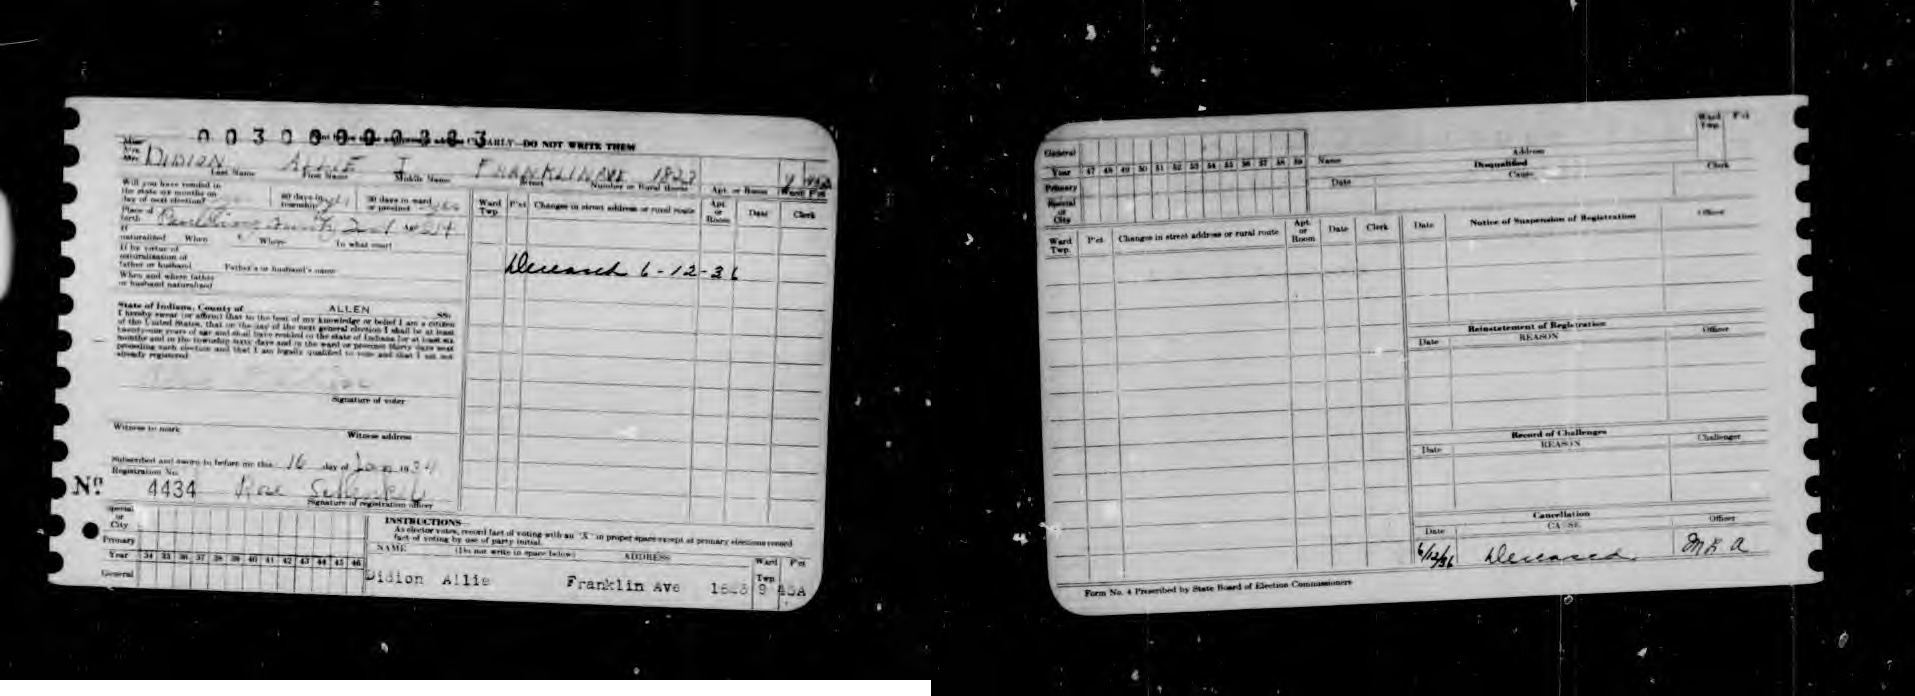 PLEASE CLEARLY—DO NOT WRITE THEM
DIDION ALLIE J FRANKLIN AVE 1823 9
Last Name First Name Middle Name Street Number or Rural Route Apt. or Room Ward P'ct
Will you have resided in
the state six months on
day of next election? 60 days in township? yes 30 days in ward or precinct yes
Place of birth
If naturalized When Where In what court
If by virtue of
naturalization of
father or husband Father's or husband's name
When and where father
or husband naturalized
State of Indiana, County of ALLEN SS:
I hereby swear (or affirm) that to the best of my knowledge or belief I am a citizen
of the United States, that on the day of the next general election I shall be at least
twenty-one years of age and shall have resided in the state of Indiana for at least six
months and in the township sixty days and in the ward or precinct thirty days next
preceding such election and that I am legally qualified to vote and that I am not
already registered
Signature of voter
Witness to mark Witness address
Subscribed and sworn to before me this 16 day of Jan 1934
Registration No.
No. 4434 Rose
Signature of registration officer
Ward Twp P'ct Changes in street address or rural route Apt. or Room Date Clerk
Deceased 6-12-36
Special or City
Primary
Year 34 35 36 37 38 39 40 41 42 43 44 45 46
General
INSTRUCTIONS
As elector votes, record fact of voting with an "X" in proper space except at primary elections record
fact of voting by use of party initial.
NAME (Do not write in space below) ADDRESS Ward Twp P'ct
Didion Allie Franklin Ave 9
General
Year 47 48 49 50 51 52 53 54 55 56 57 58 59
Primary
Special or City
Name Address Ward Twp. P'ct
Disqualified
Date Cause Clerk
Ward Twp. P'ct Changes in street address or rural route Apt. or Room Date Clerk
Date Notice of Suspension of Registration Officer
Reinstatement of Registration
Date REASON Officer
Record of Challenges
Date REASON Challenger
Cancellation
Date CAUSE Officer
6/12/36 Deceased M L A
Form No. 4 Prescribed by State Board of Election Commissioners